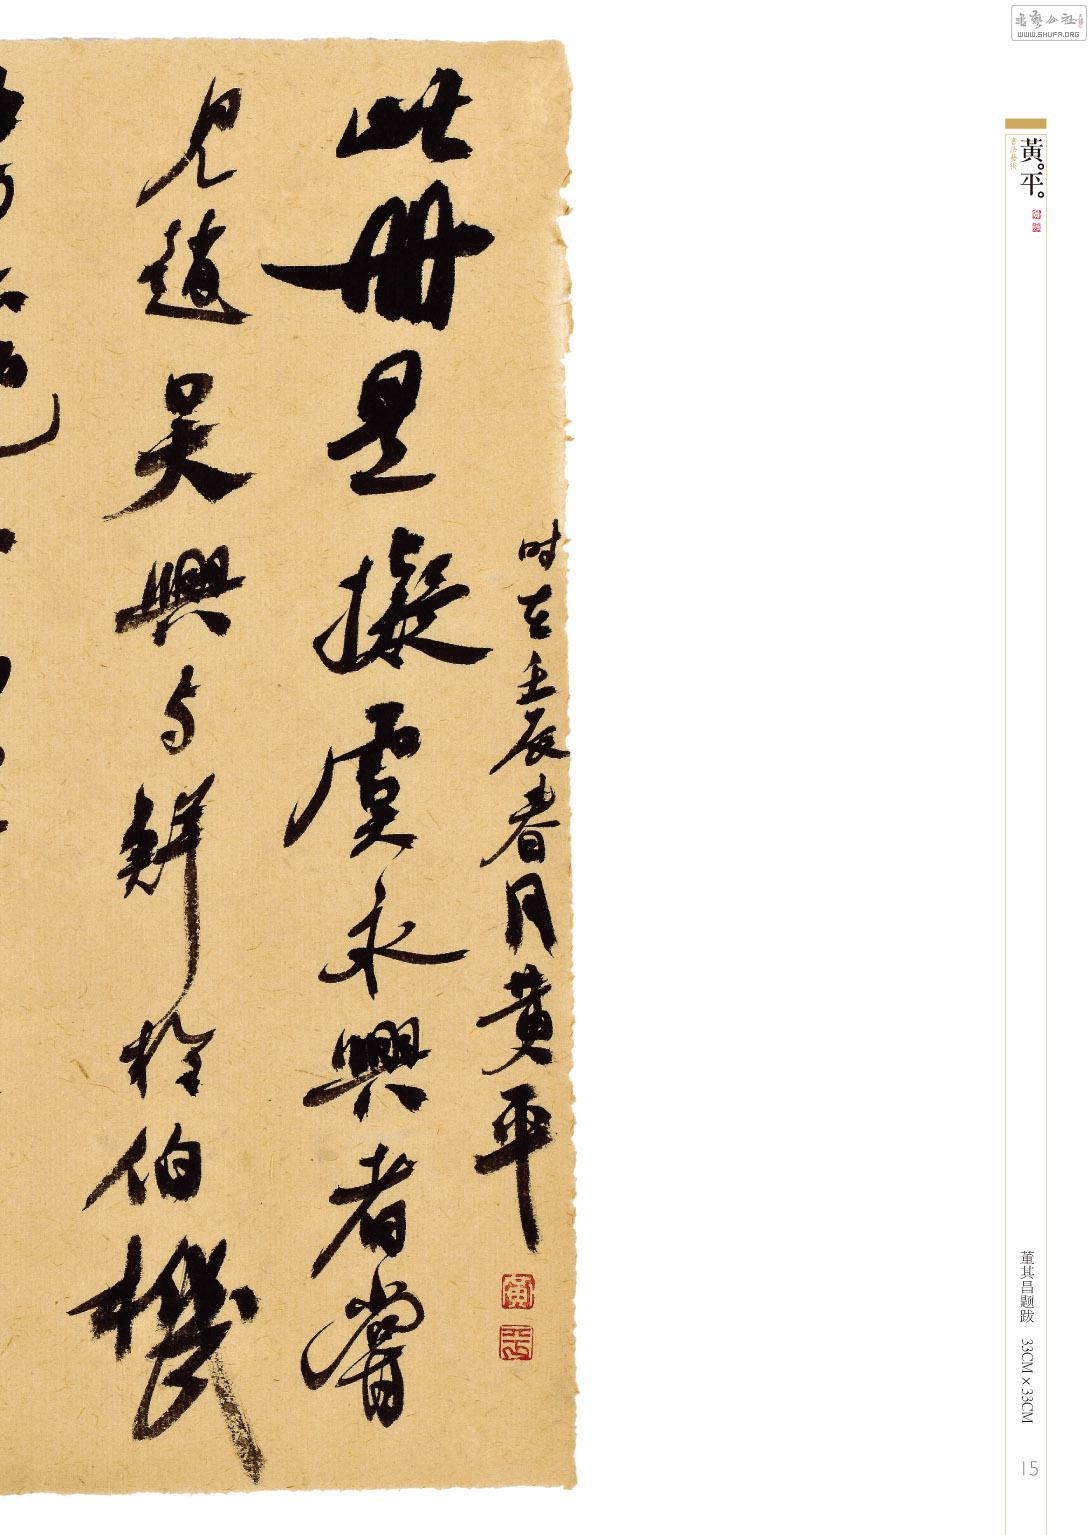 書藝公社
WWW.SHUFA.ORG
黃。平。
書法藝術
董其昌题跋 33CM×33CM
15
时在壬辰春月黄平
黃平
此冊是擬虞永興者嘗
見趙吳興与鮮於伯機